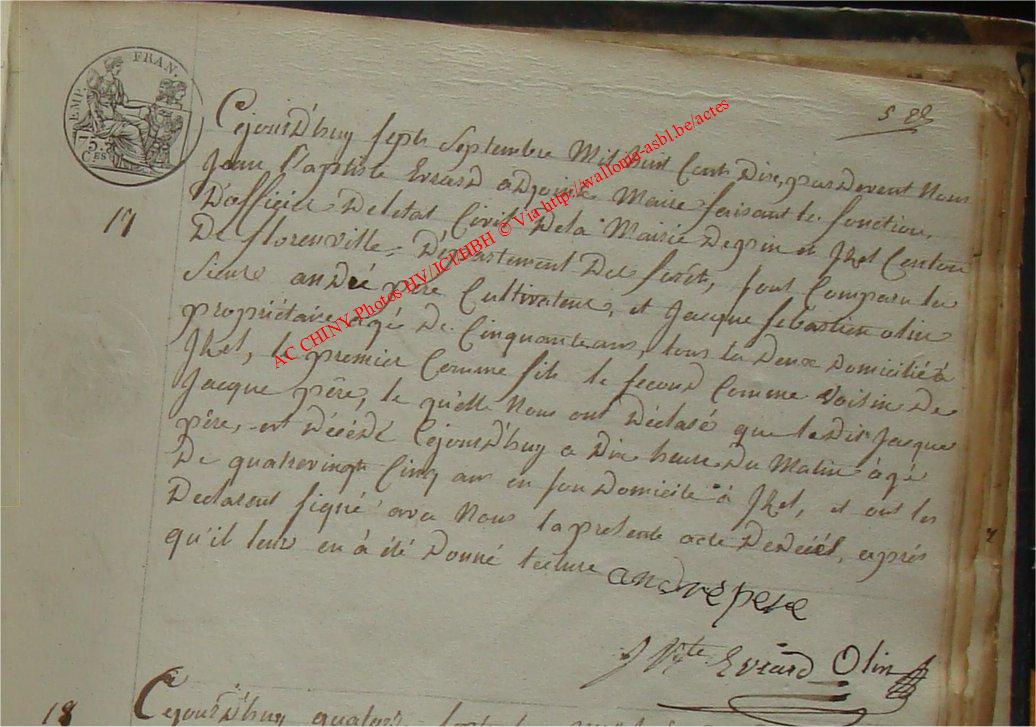 EMP. FRAN.
75.
C.ES
5 8bre
17
Cejourd'huy sept Septembre Mil huit Cent Dix, par Devent Nous
Jean Baptiste Evrard adjoint Maire faisant le fonction
D'officier Deletat Civil Dela Mairie Depin et Jzel Canton
De florenville, Département Des forêt, sont Comparu les
Sieurs andré père Cultivateur, et Jacque Sébastien olin
propriétaire agé De Cinquante ans, tous les Deux Domicilié à
Jzel, le premier Comme fils le second Comme Voisin De
Jacque père, le quelle Nous ont Déclaré que le Dit Jacque
père, est Décédé Cejourd'huy a Dix heure Du Matin agé
De quatrevingt Cinq ans en son Domicile à Jzel, et ont les
Declarent signé avec Nous la presente acte Dedécès, après
qu'il leur en à été Donné lecture
andré pere
J Bte Evrard Olin
18
Cejourd'huy quatorze
AC CHINY Photos HV/ICI/HBH © Via http://wallonia-asbl.be/actes